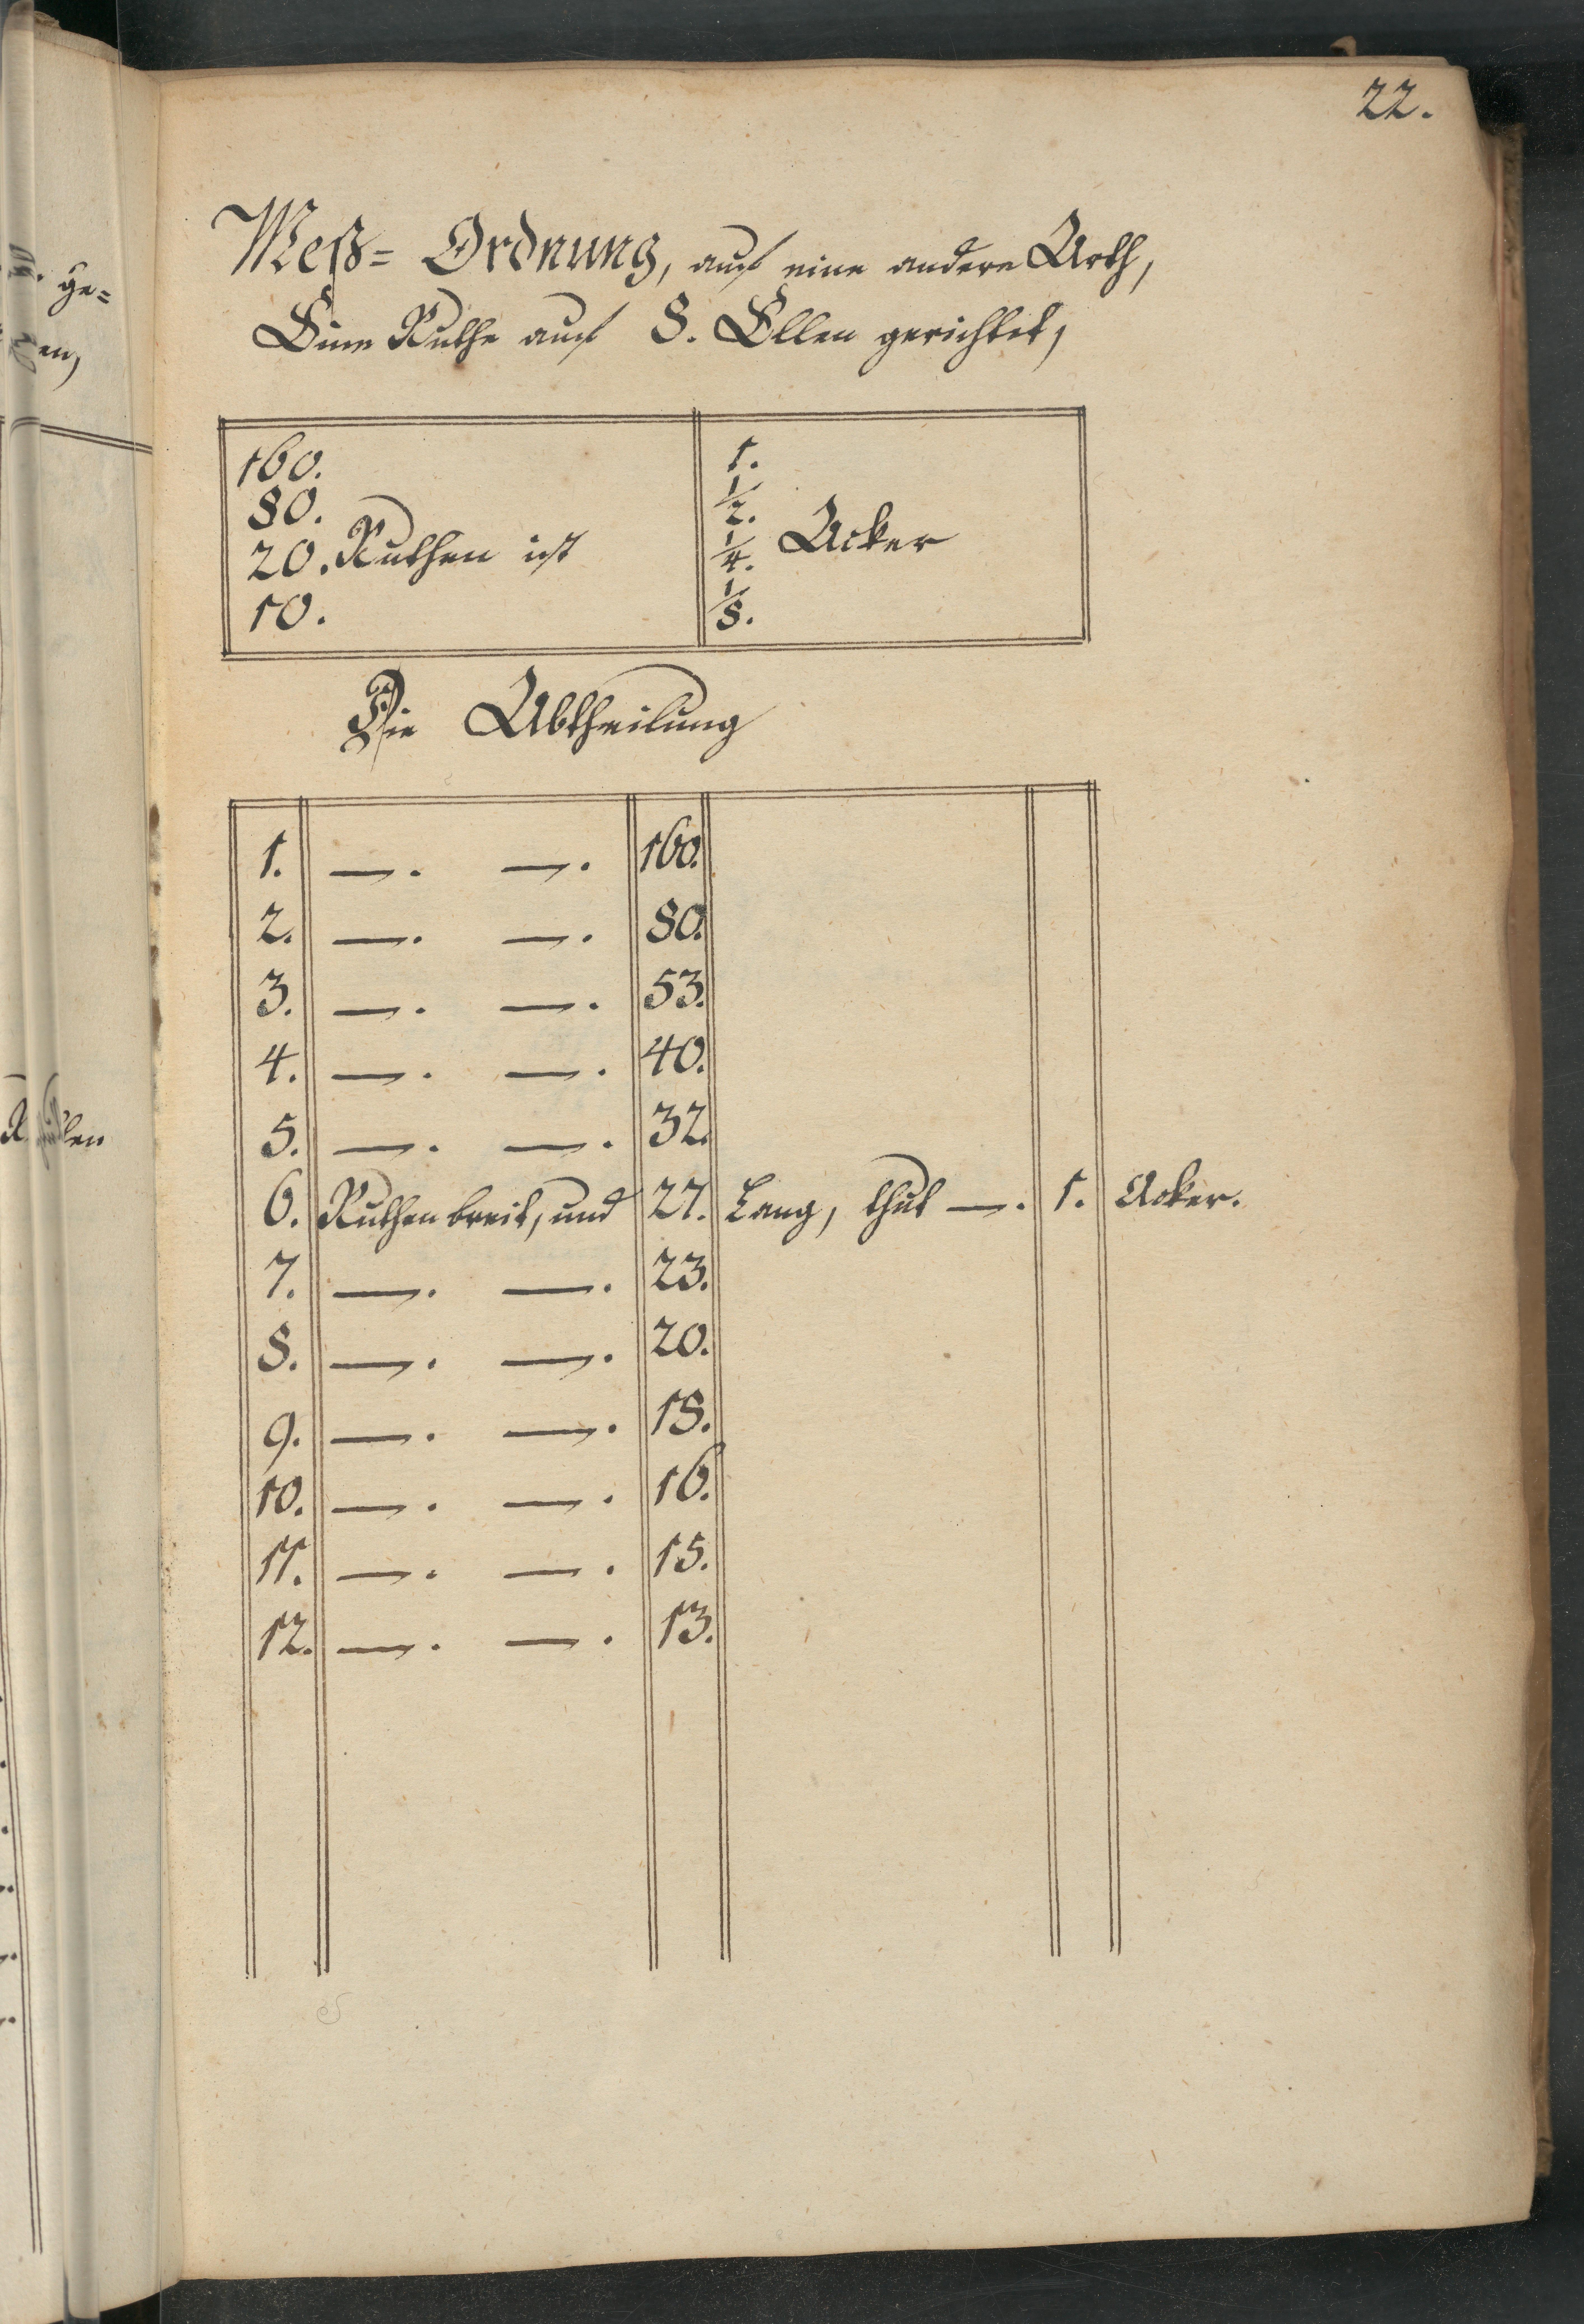 22.
Meß= Ordnung, auf eine andere Arth,
Eine Ruthe auf 8. Ellen gerichtet,
160. 1.
80. 1/2.
20. Ruthen ist 1/4. Acker
10. 1/8.
Die Abtheilung
1. —. —. 160.
2. —. —. 80.
3. —. —. 53.
4. —. —. 40.
5. —. —. 32.
6. Ruthen breit, und 27. Lang, thut —. 1. Acker.
7. —. —. 23.
8. —. —. 20.
9. —. —. 18.
10. —. —. 16.
11. —. —. 15.
12. —. —. 13.